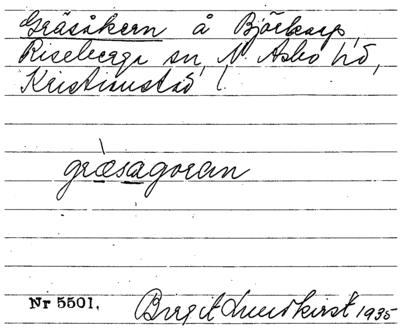 Gräsåkern å Björkarp,
Riseberga sn, N. Åsbo hd,
Kristianstad l.
gràsagoran
Nr 5501.
Birgit Lundkvist 1935